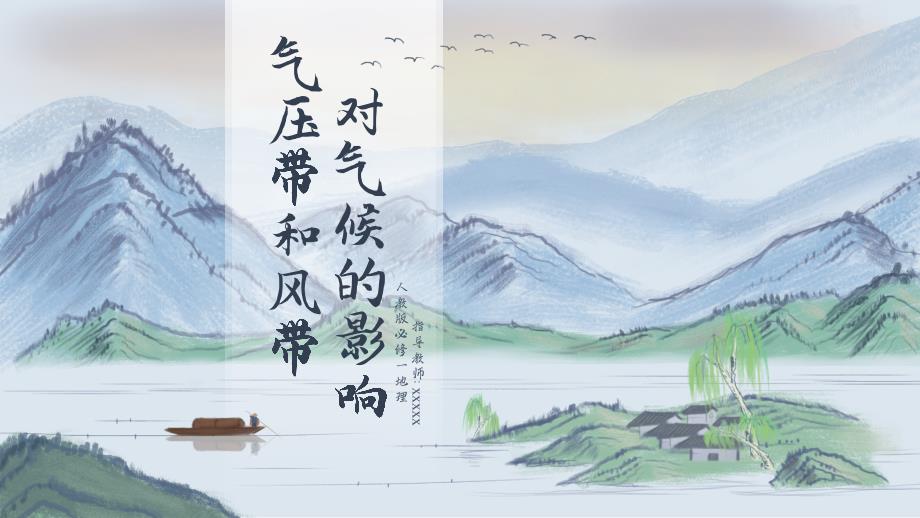 气压带和风带
对气候的影响
人教版必修一地理
指导教师:XXXXX